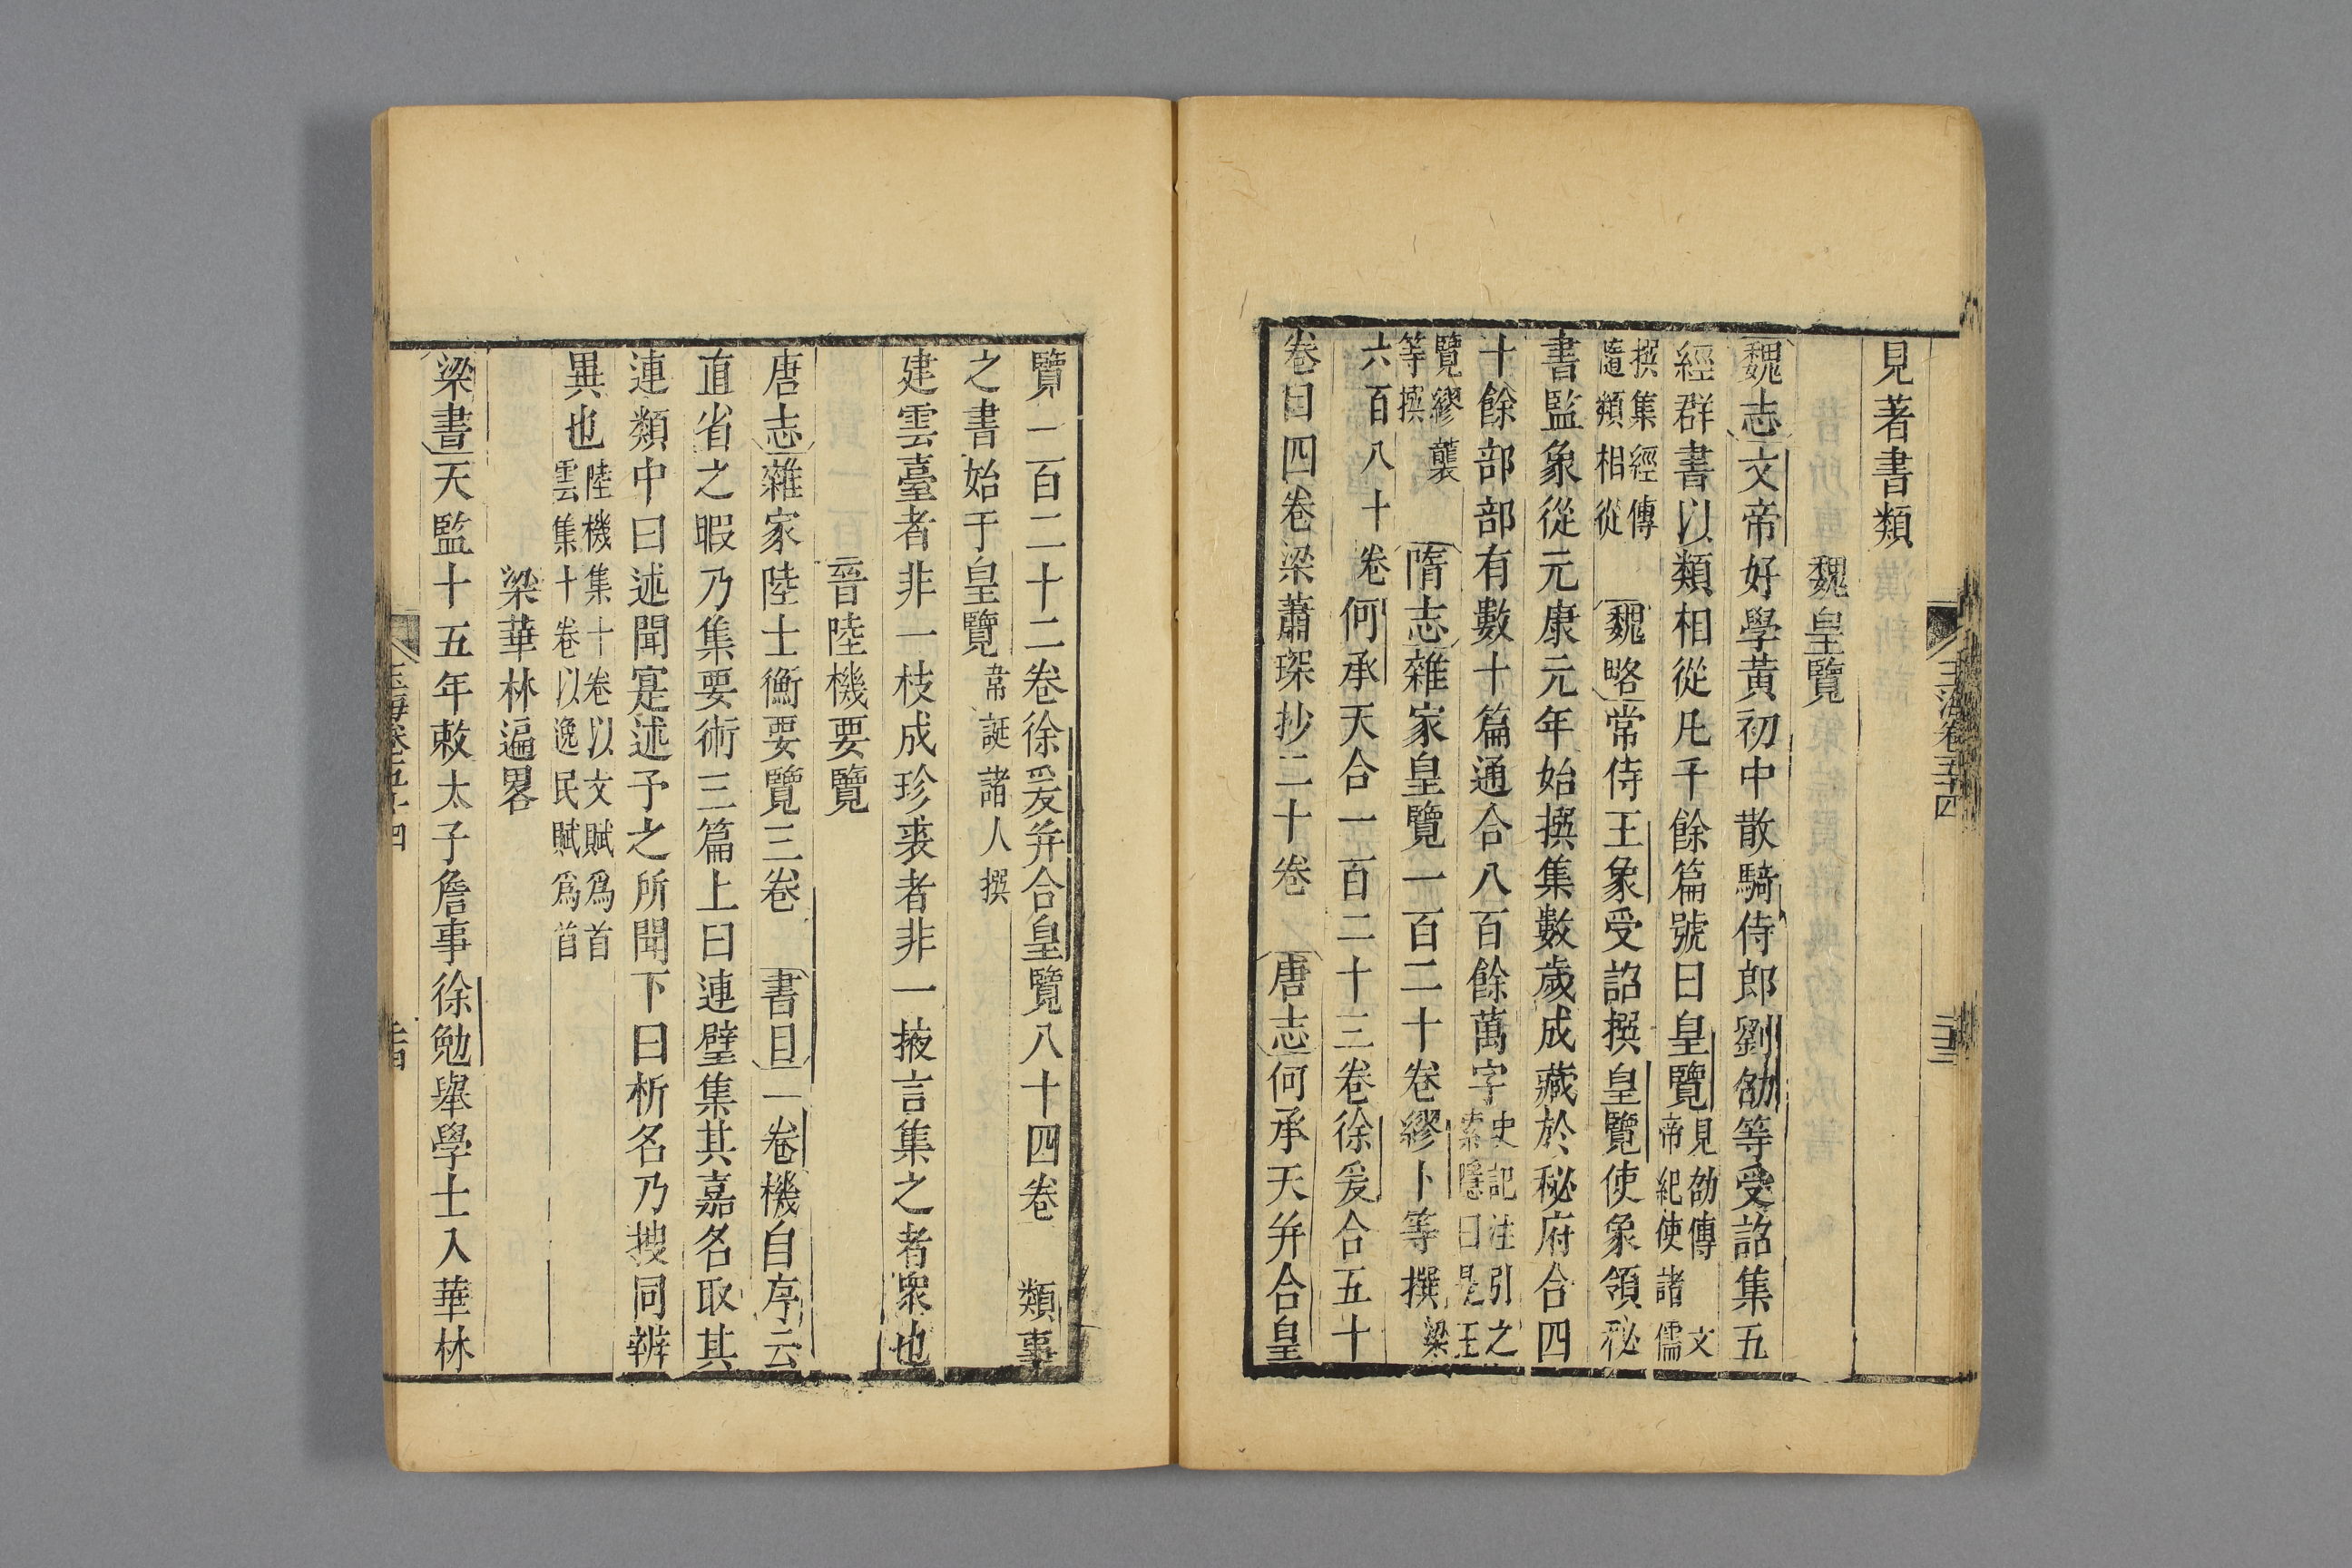 見著書類
魏皇覽
魏志文帝好學黃初中散騎侍郎劉劭等受詔集五
經群書以類相從凡千餘篇號曰皇覽見劭傳 文帝紀使諸儒
撰集經傳隨類相從 魏略常侍王象受詔撰皇覽使象領秘
書監象從元康元年始撰集數歲成藏於秘府合四
十餘部部有數十篇通合八百餘萬字史記注引之索隱曰是王
覽繆襲等撰 隋志雜家皇覽一百二十卷繆卜等撰梁
六百八十卷何承天合一百二十三卷徐爰合五十
卷目四卷梁蕭琛抄二十卷 唐志何承天并合皇
覽一百二十二卷徐爰并合皇覽八十四卷 類事
之書始于皇覽韋誕諸人撰
建雲臺者非一枝成珍裘者非一掖言集之者衆也
晉陸機要覽
唐志雜家陸士衡要覽三卷 書目一卷機自序云
直省之暇乃集要術三篇上曰連璧集其嘉名取其
連類中曰述聞寔述予之所聞下曰析名乃搜同辨
異也陸機集十卷以文賦爲首雲集十卷以逸民賦爲首
梁華林遍畧
梁書天監十五年敕太子詹事徐勉舉學士入華林